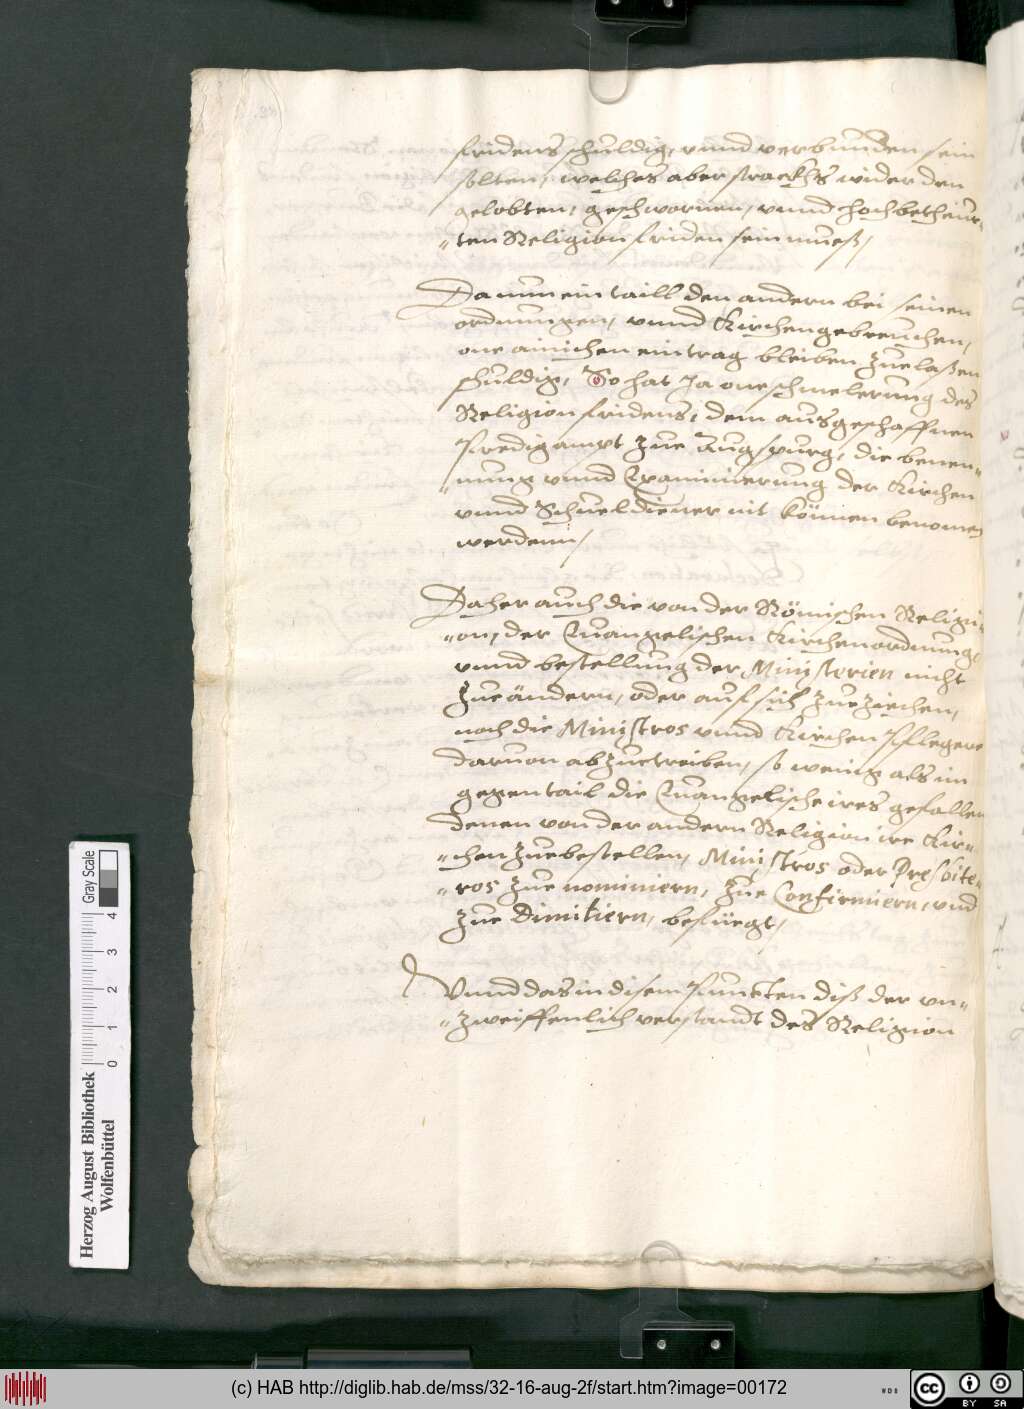 fridens schuldig, vnnd verbunden sein
solten, welches aber strackhs wider den
gelobten, geschwornen, vnnd hochbetheur-
ten Religion friden sein mueß,
Da nun ein taill den andern bei seinen
ordnungen, vnnd Kirchengebreuchen,
one ainichen eintrag bleiben zuelaßen
schuldig, So hat Ja one schmelerung des
Religion fridens, dem ausgeschaffnen
Predigampt zue Augspurg, die benen-
nung vnnd Examinierung der Kirchen
vnnd Schueldiener nit können benomen
werdenn,
Daher auch die von der Römischen Religi-
on, der Euangelischen Kirchenordnung,
vnnd bestellung der Ministerien nicht
zue ändern, oder auf sich zue ziehen,
noch die Ministros vnnd Kirchen Pflegere
daruon abzuetreiben, so wenig als im
gegentail die Euangelische ires gefallen
denen von der andern Religion ire Kir-
chen zue bestellen, Ministros oder Presbite-
ros zue nominiern, zue Confirmiern, vnd
zue Dimitiern, befuegt,
Vnnd das in disem Puncten diß der vn-
zweiffenlich verstandt des Religion
Herzog August Bibliothek
Wolfenbüttel
0 1 2 3 4
Gray Scale
(c) HAB http://diglib.hab.de/mss/32-16-aug-2f/start.htm?image=00172
WDB
CC BY SA